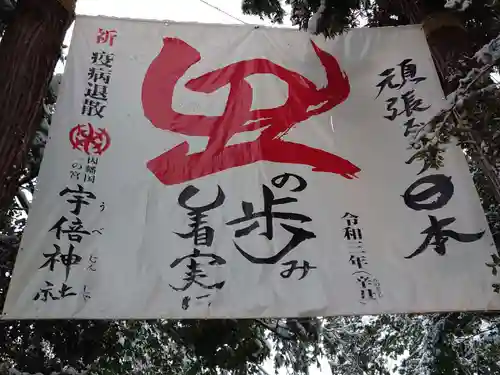 頑張ろう日本
令和三年(辛丑)
丑
の歩み
着実に
祈
疫病退散
因幡国
一の宮
宇倍神社
うべじんじゃ